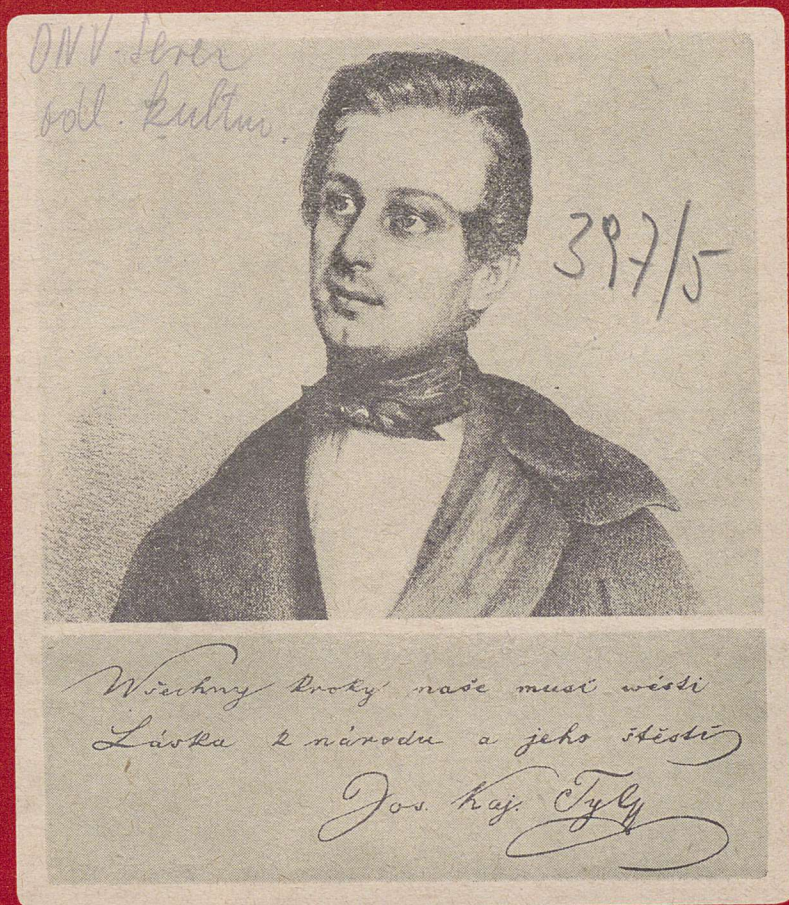 ONV-Sever
odd. kultur.
397/5
Wšechny kroky naše musí wésti
Láska k národu a jeho štěstí
Jos. Kaj. Tyl